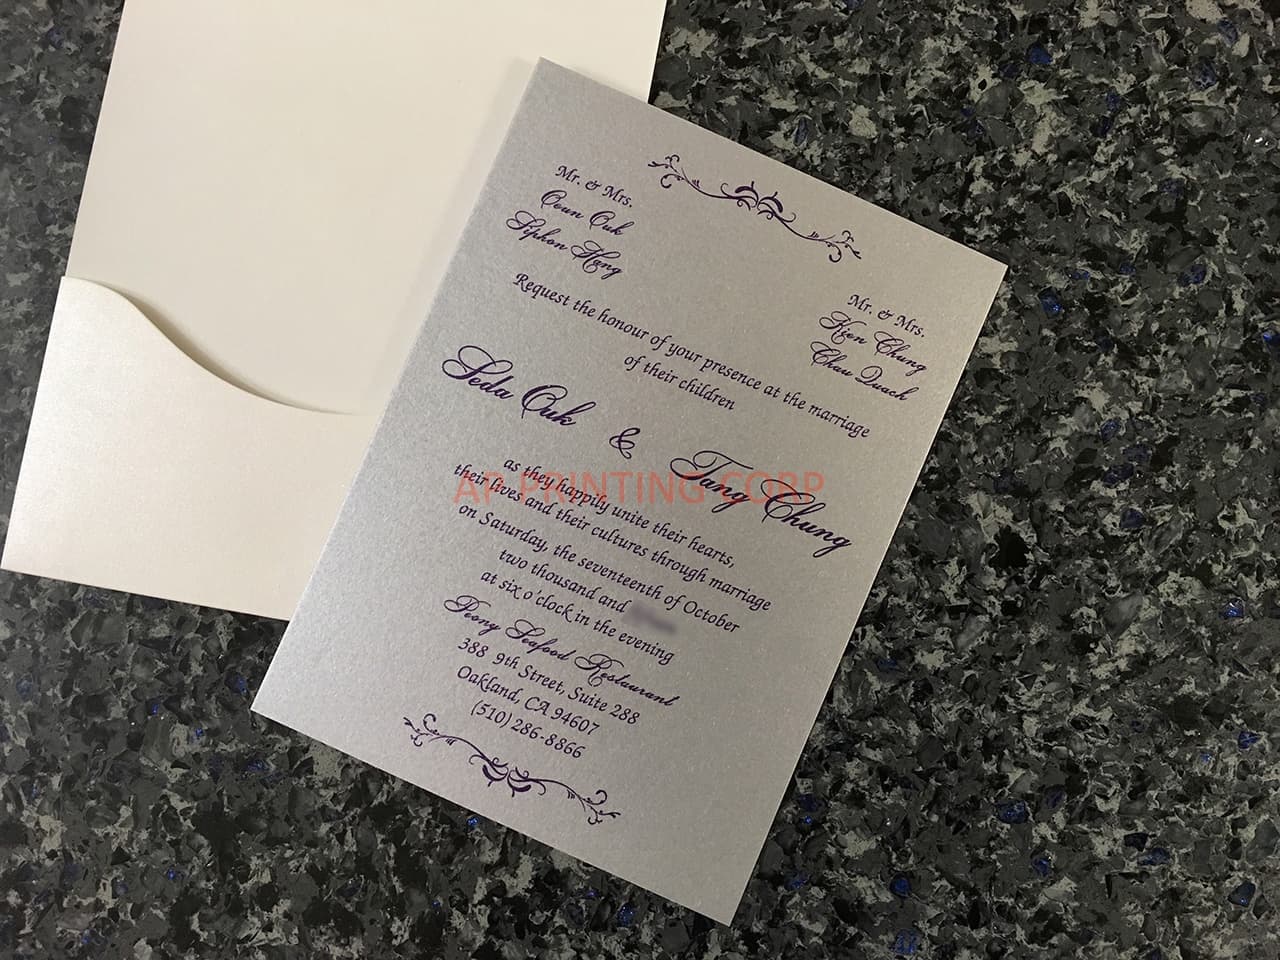 Mr. & Mrs.
Coun Ouk
Sephon Hang
Mr. & Mrs.
Kien Chung
Chau Quach
Request the honour of your presence at the marriage
of their children
Seda Ouk & Tang Chung
as they happily unite their hearts,
their lives and their cultures through marriage
on Saturday, the seventeenth of October
two thousand and
at six o'clock in the evening
Peony Seafood Restaurant
388 9th Street, Suite 288
Oakland, CA 94607
(510) 286-8866
AP PRINTING CORP